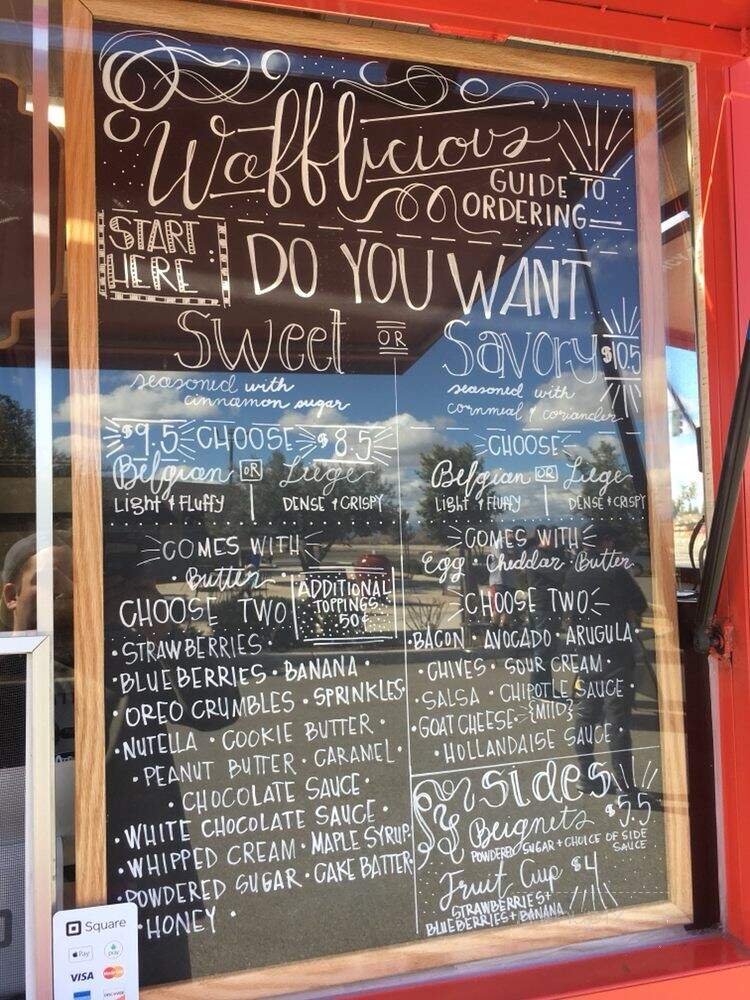 Wafflicious
GUIDE TO
ORDERING
START
HERE:
DO YOU WANT
Sweet OR Savory $10.5
seasoned with
cinnamon sugar
seasoned with
cornmeal & coriander
$9.5 CHOOSE $8.5
Belgian OR Liege
Light & Fluffy DENSE & CRISPY
COMES WITH
• Butter •
CHOOSE TWO
ADDITIONAL
TOPPINGS
50¢
• STRAWBERRIES •
• BLUEBERRIES • BANANA •
• OREO CRUMBLES • SPRINKLES •
• NUTELLA • COOKIE BUTTER •
• PEANUT BUTTER • CARAMEL •
• CHOCOLATE SAUCE •
• WHITE CHOCOLATE SAUCE •
• WHIPPED CREAM • MAPLE SYRUP •
• POWDERED SUGAR • CAKE BATTER •
• HONEY •
CHOOSE
Belgian OR Liege
Light & Fluffy DENSE & CRISPY
COMES WITH
Egg • Cheddar • Butter
CHOOSE TWO
• BACON • AVOCADO • ARUGULA •
• CHIVES • SOUR CREAM •
• SALSA • CHIPOTLE SAUCE •
• GOAT CHEESE • {MILD}
• HOLLANDAISE SAUCE •
Sides
Beignets $5.5
POWDERED SUGAR + CHOICE OF SIDE
SAUCE
Fruit Cup $4
STRAWBERRIES +
BLUEBERRIES + BANANA
Square
Pay pay
VISA MasterCard
DISCOVER